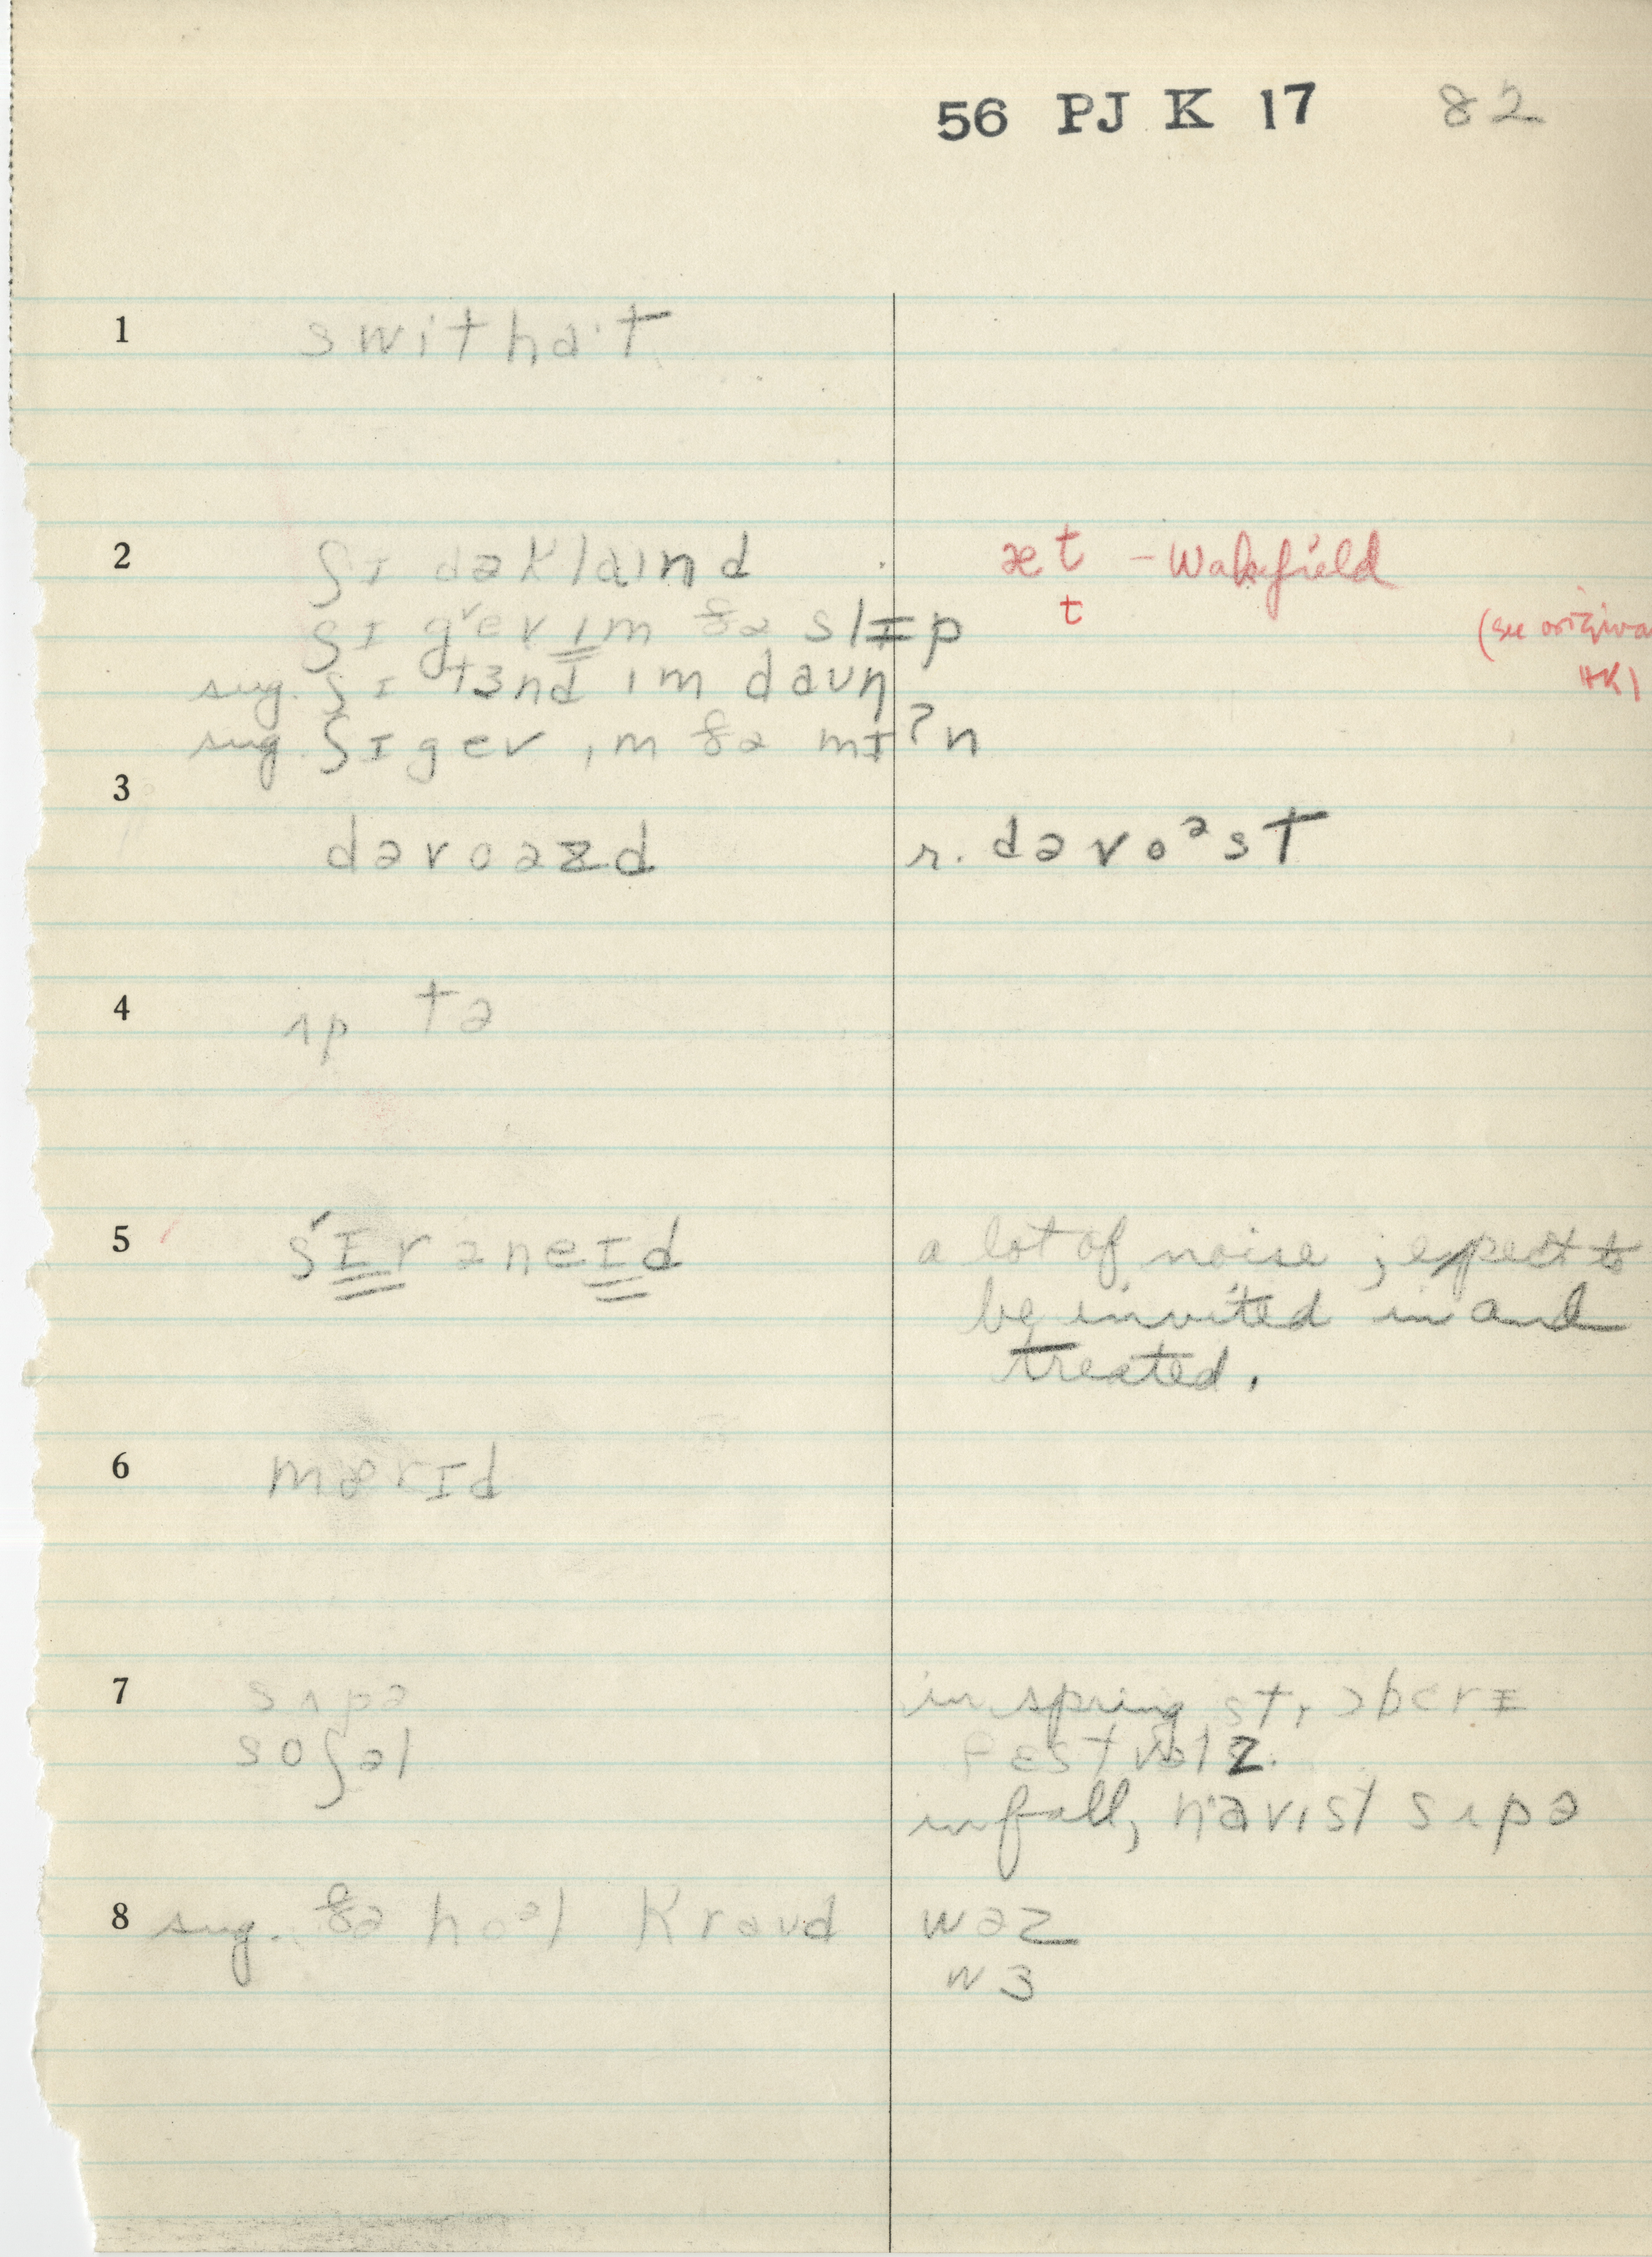 56 PJ K 17 82
1 switha·t
2 ʃɪ dəklaɪnd æt – Wakefield
ʃɪ gɛv ɪm ðə slɪp t (see original
sug. ʃɪ tɜnd ɪm daʊn HK)
sug. ʃɪ gev ɪm ðə mɪʔn
3 dəvoəzd r. dəvoᵊst
4 ʌp tə
5 ʃɪ́rəneɪd a lot of noise; expect to
be invited in and
treated.
6 mærɪd
7 sʌpə in spring strɔbɛrɪ
soʃəl fɛstvəlz.
in fall, havɪst sʌpə
8 sug. ðə hoᵊl kraʊd wəz
wɜ